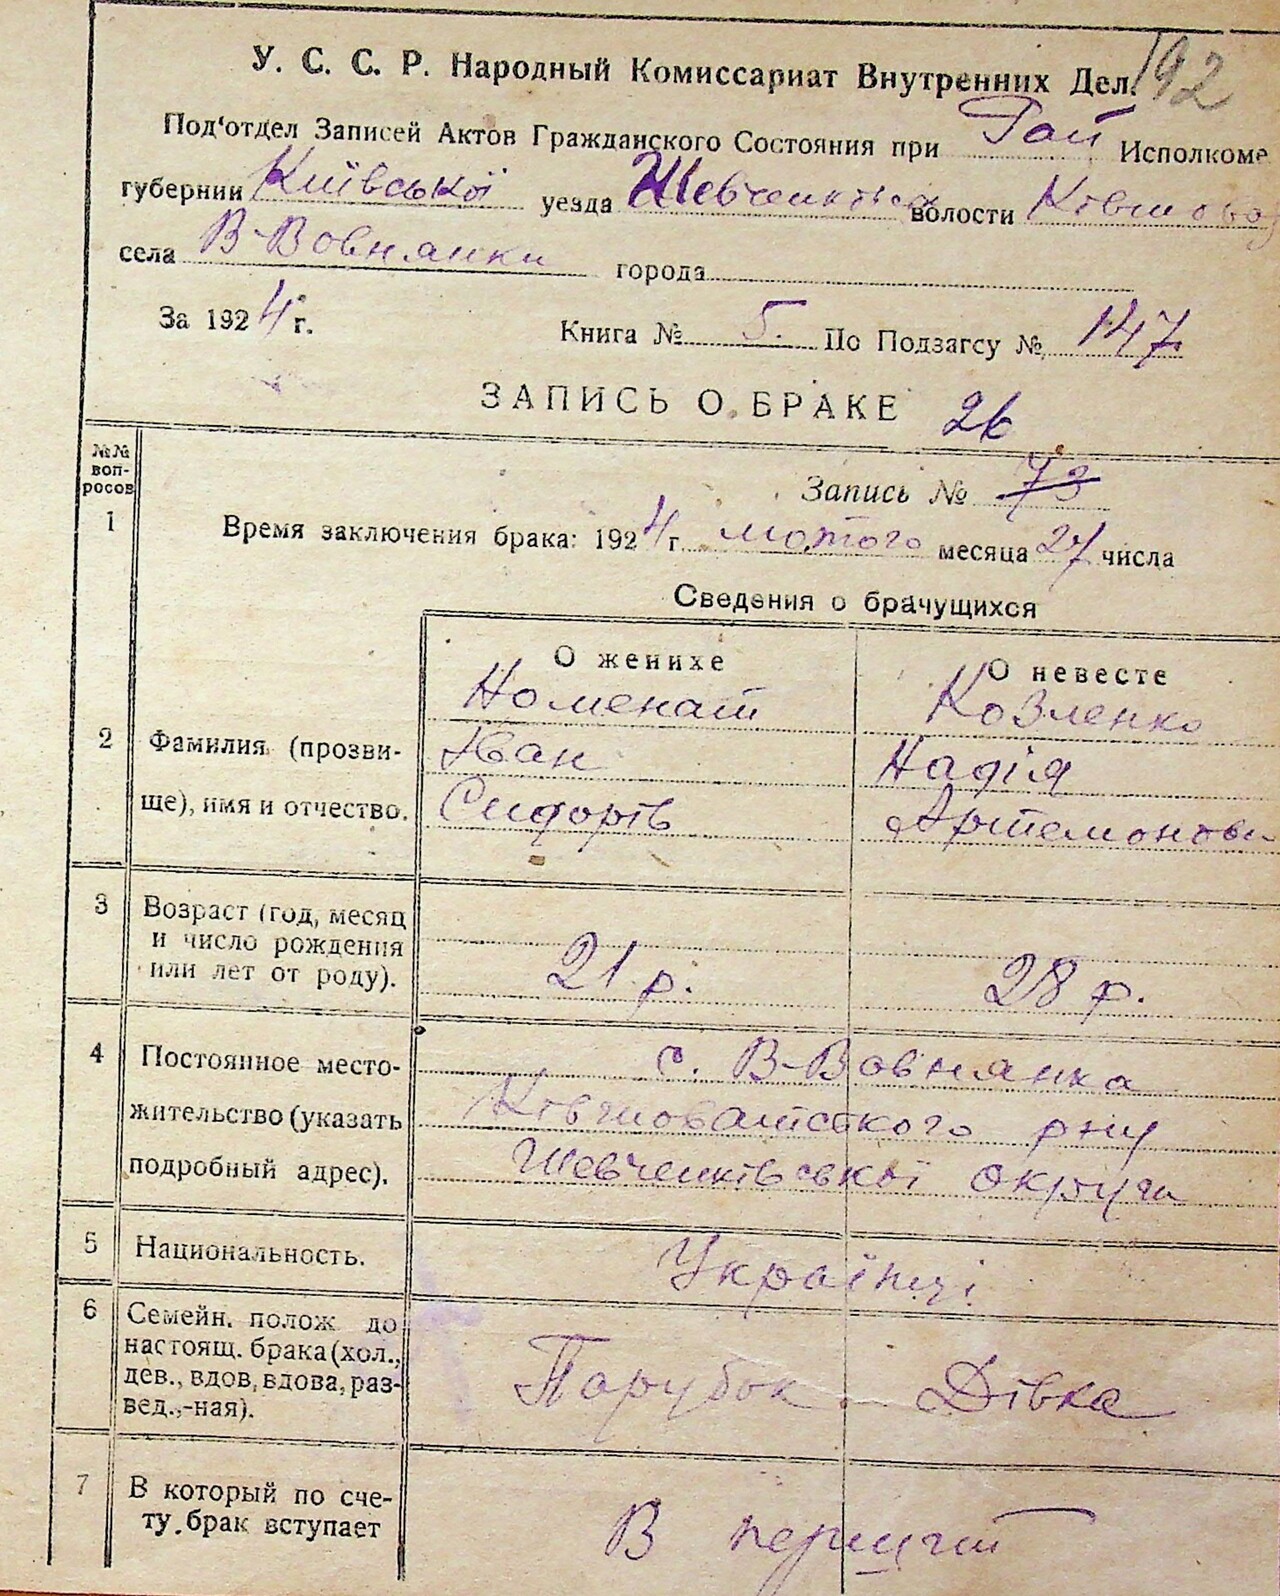 192
У. С. С. Р. Народный Комиссариат Внутренних Дел.
Под'отдел Записей Актов Гражданского Состояния при Рай Исполкоме
губернии Київської уезда Шевченківск волости Ківшоват
села В-Вовнянки города
За 1924 г. Книга № 5. По Подзагсу № 147
ЗАПИСЬ О БРАКЕ 26
№№ вопросов
Запись № 73
1 Время заключения брака: 1924 г. лютого месяца 27 числа
Сведения о брачущихся
О женихе О невесте
Номенат Козленко
2 Фамилия (прозви- Іван Надія
ще), имя и отчество. Сидорів Артемонови
3 Возраст (год, месяц
и число рождения
или лет от роду). 21 р. 28 р.
4 Постоянное место- с. В-Вовнянка
жительство (указать Ківшоватського рну
подробный адрес). Шевченківської округи
5 Национальность. Українці
6 Семейн. полож до
настоящ. брака (хол.,
дев., вдов, вдова, раз- Парубок - Дівка
вед.,-ная).
7 В который по сче-
ту брак вступает В перший